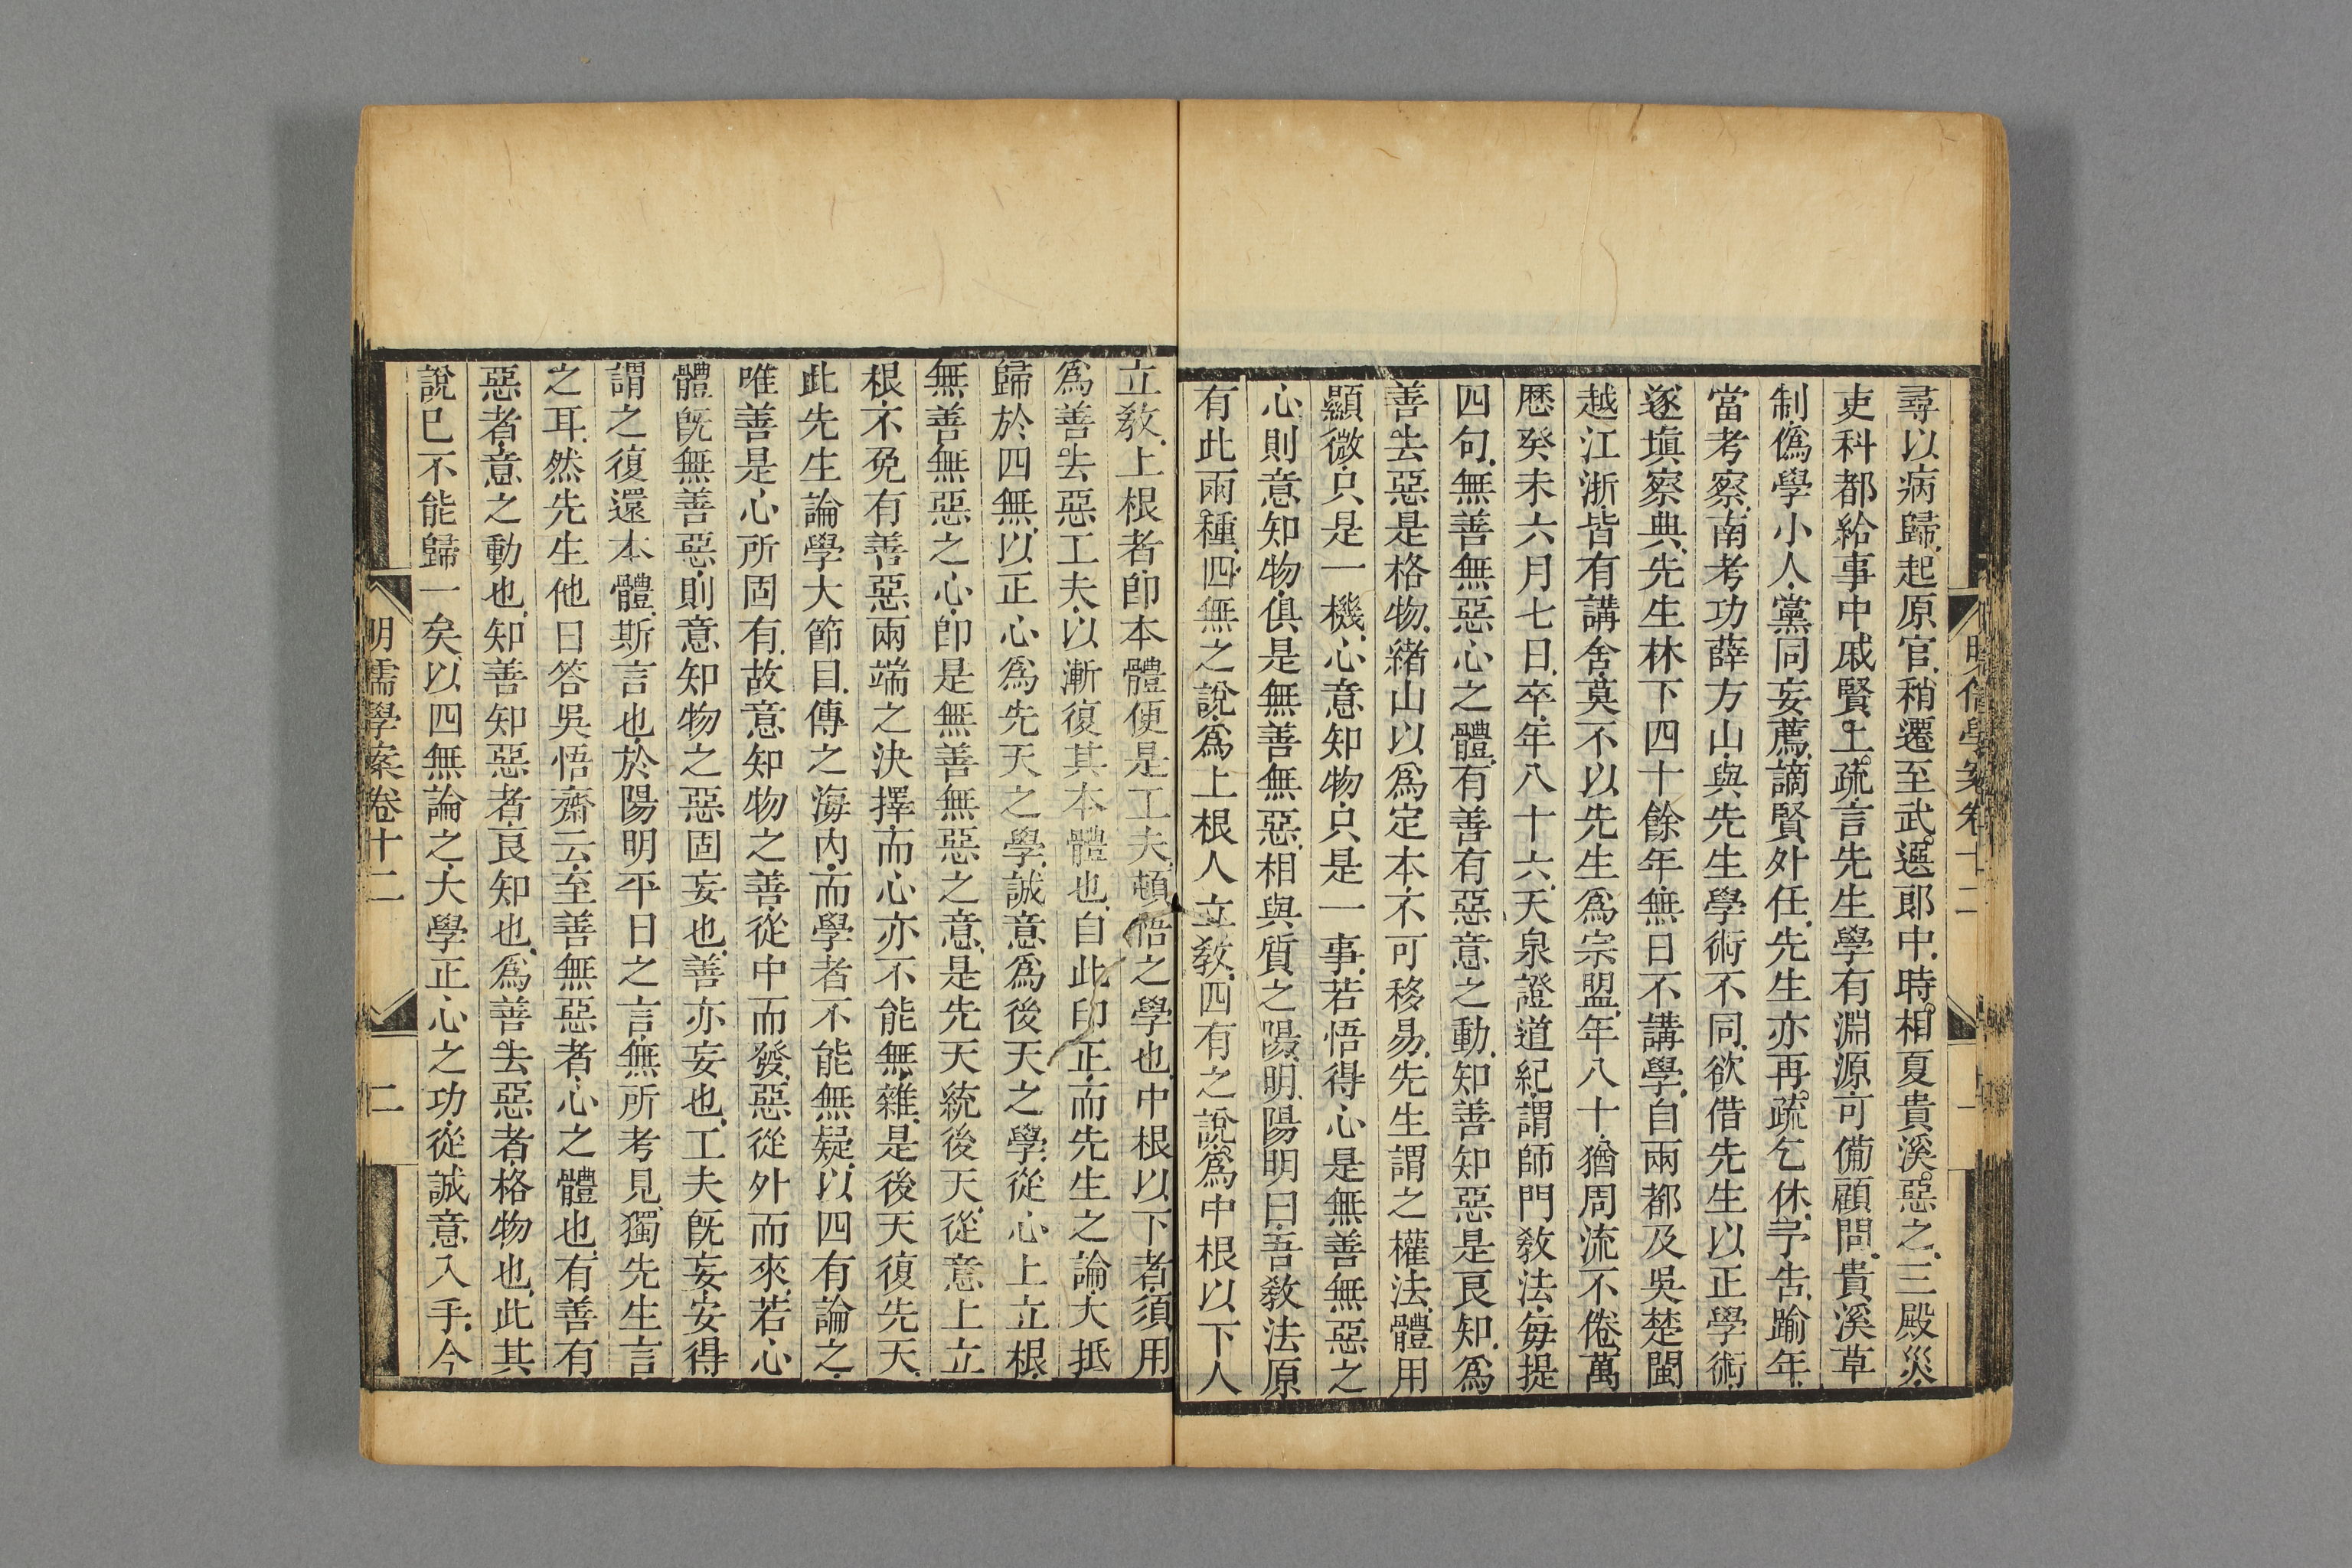 尋以病歸起原官稍遷至武選郎中時相夏貴溪惡之三殿災
吏科都給事中戚賢上疏言先生學有淵源可備顧問貴溪草
制僞學小人黨同妄薦謫賢外任先生亦再疏乞休而告踰年
當考察南考功薛方山與先生學術不同欲借先生以正學術
遂塡察典先生林下四十餘年無日不講學自兩都及吳楚閩
越江浙皆有講舍莫不以先生爲宗盟年八十猶周流不倦萬
歷癸未六月七日卒年八十六天泉證道紀謂師門敎法每提
四句無善無惡心之體有善有惡意之動知善知惡是良知爲
善去惡是格物緒山以爲定本不可移易先生謂之權法體用
顯微只是一機心意知物只是一事若悟得心是無善無惡之
心則意知物俱是無善無惡相與質之陽明陽明曰吾敎法原
有此兩種四無之說爲上根人立敎四有之說爲中根以下人
立敎上根者卽本體便是工夫頓悟之學也中根以下者須用
爲善去惡工夫以漸復其本體也自此印正而先生之論大抵
歸於四無以正心爲先天之學誠意爲後天之學從心上立根
無善無惡之心卽是無善無惡之意是先天統後天從意上立
根不免有善惡兩端之決擇而心亦不能無雜是後天復先天
此先生論學大節目傳之海內而學者不能無疑以四有論之
唯善是心所固有故意知物之善從中而發惡從外而來若心
體旣無善惡則意知物之惡固妄也善亦妄也工夫旣妄安得
謂之復還本體斯言也於陽明平日之言無所考見獨先生言
之耳然先生他日答吳悟齋云至善無惡者心之體也有善有
惡者意之動也知善知惡者良知也爲善去惡者格物也此其
說已不能歸一矣以四無論之大學正心之功從誠意入手今
明儒學案卷十二
二